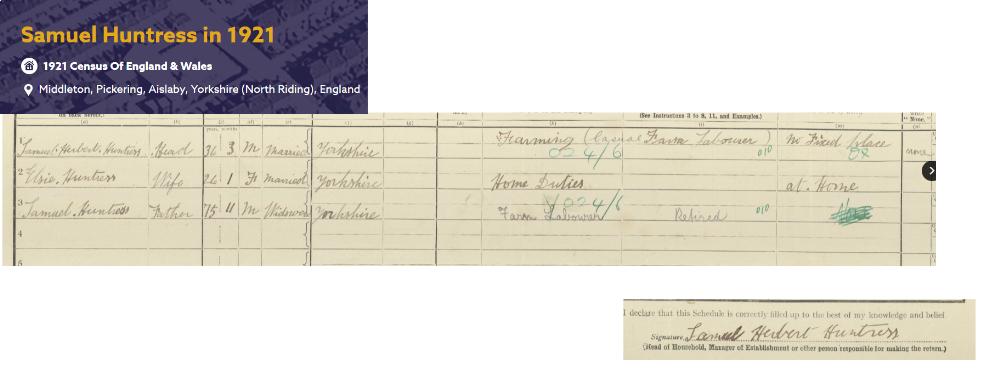 Samuel Huntress in 1921
1921 Census Of England & Wales
Middleton, Pickering, Aislaby, Yorkshire (North Riding), England
(See Instructions 3 to 8, 11, and Examples.)
"None."
1 Samuel Herbert Huntress Head 36 3 M Married Yorkshire Farming (Casual Farm Labourer) No Fixed place none
024/6 010
2 Elsie Huntress Wife 26 1 F Married Yorkshire Home Duties at Home
3 Samuel Huntress Father 75 11 M Widower Yorkshire Farm Labourer Retired
024/6 010
4
5
I declare that this Schedule is correctly filled up to the best of my knowledge and belief.
Signature Samuel Herbert Huntress
(Head of Household, Manager of Establishment or other person responsible for making the return.)